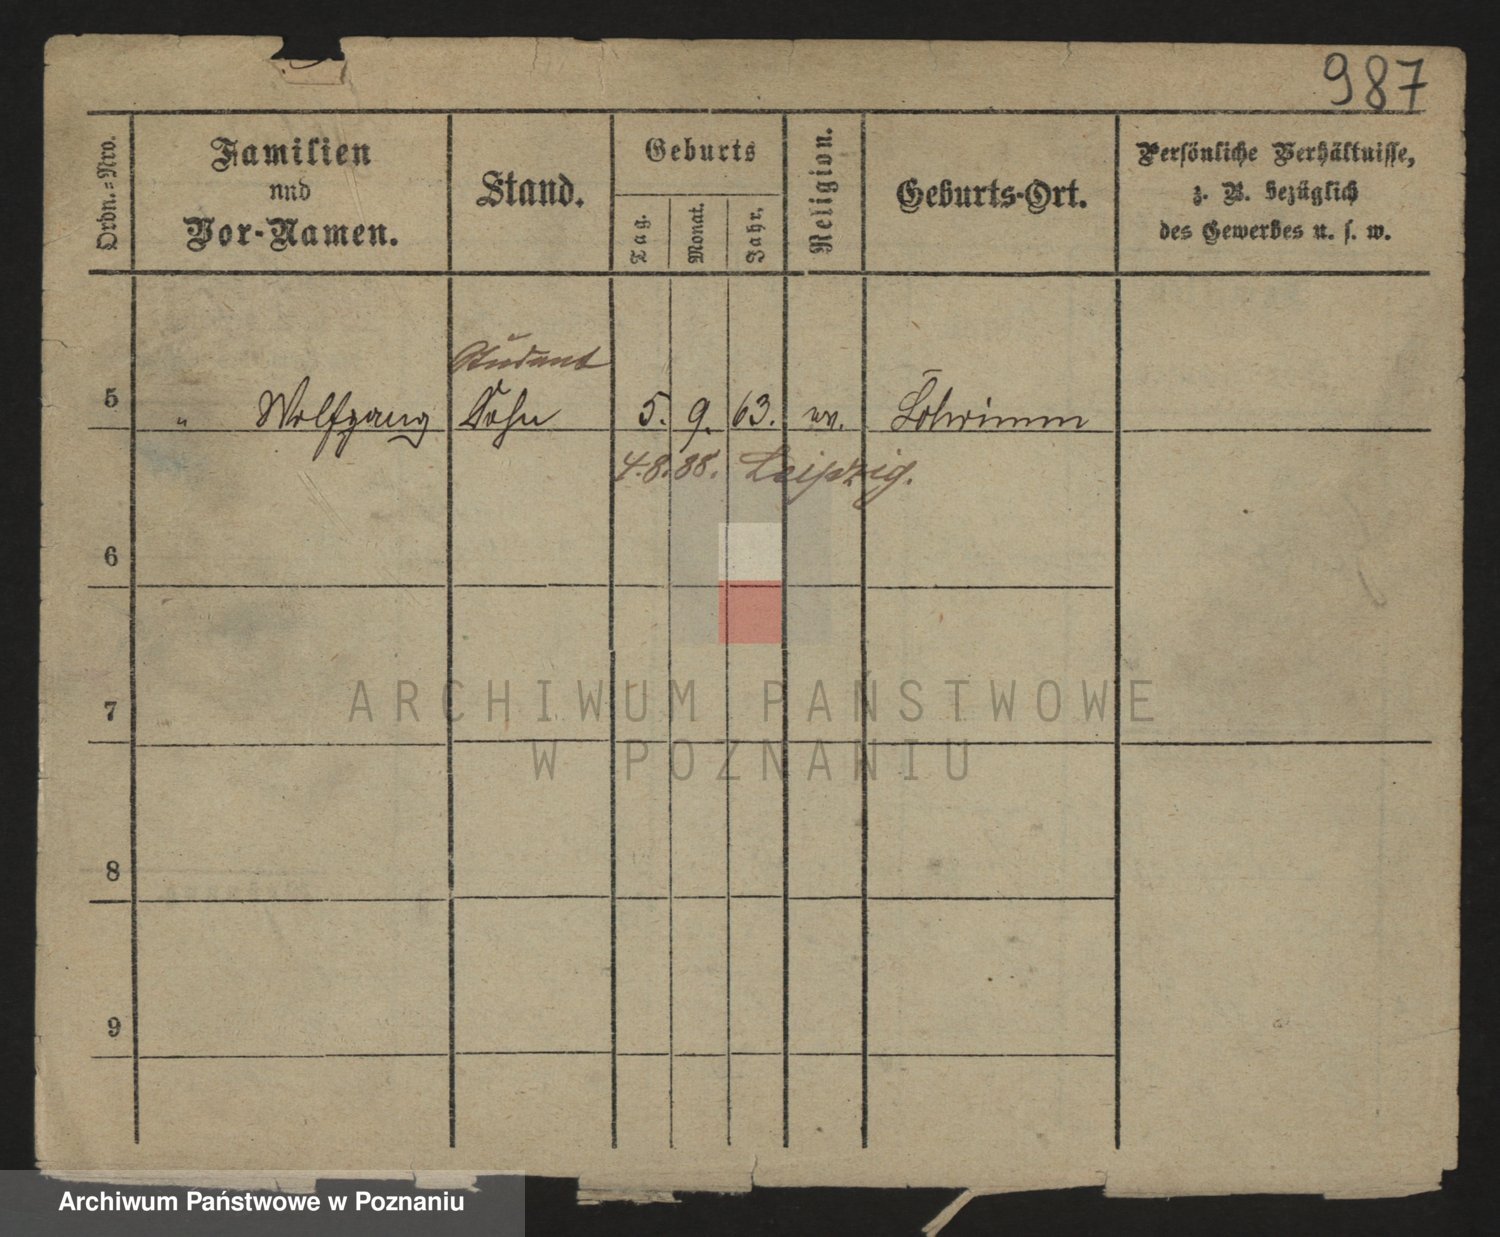 987
Ordn.=Nro.
Familien
und
Vor-Namen.
Stand.
Geburts
Tag.
Monat.
Jahr.
Religion.
Geburts-Ort.
Persönliche Verhältnisse,
z. B. bezüglich
des Gewerbes u. s. w.
Student
5 " Wolfgang Sohn 5. 9. 63. ev.
4.8.88. Leipzig.
6
7
8
9
ARCHIWUM PAŃSTWOWE
W POZNANIU
Archiwum Państwowe w Poznaniu